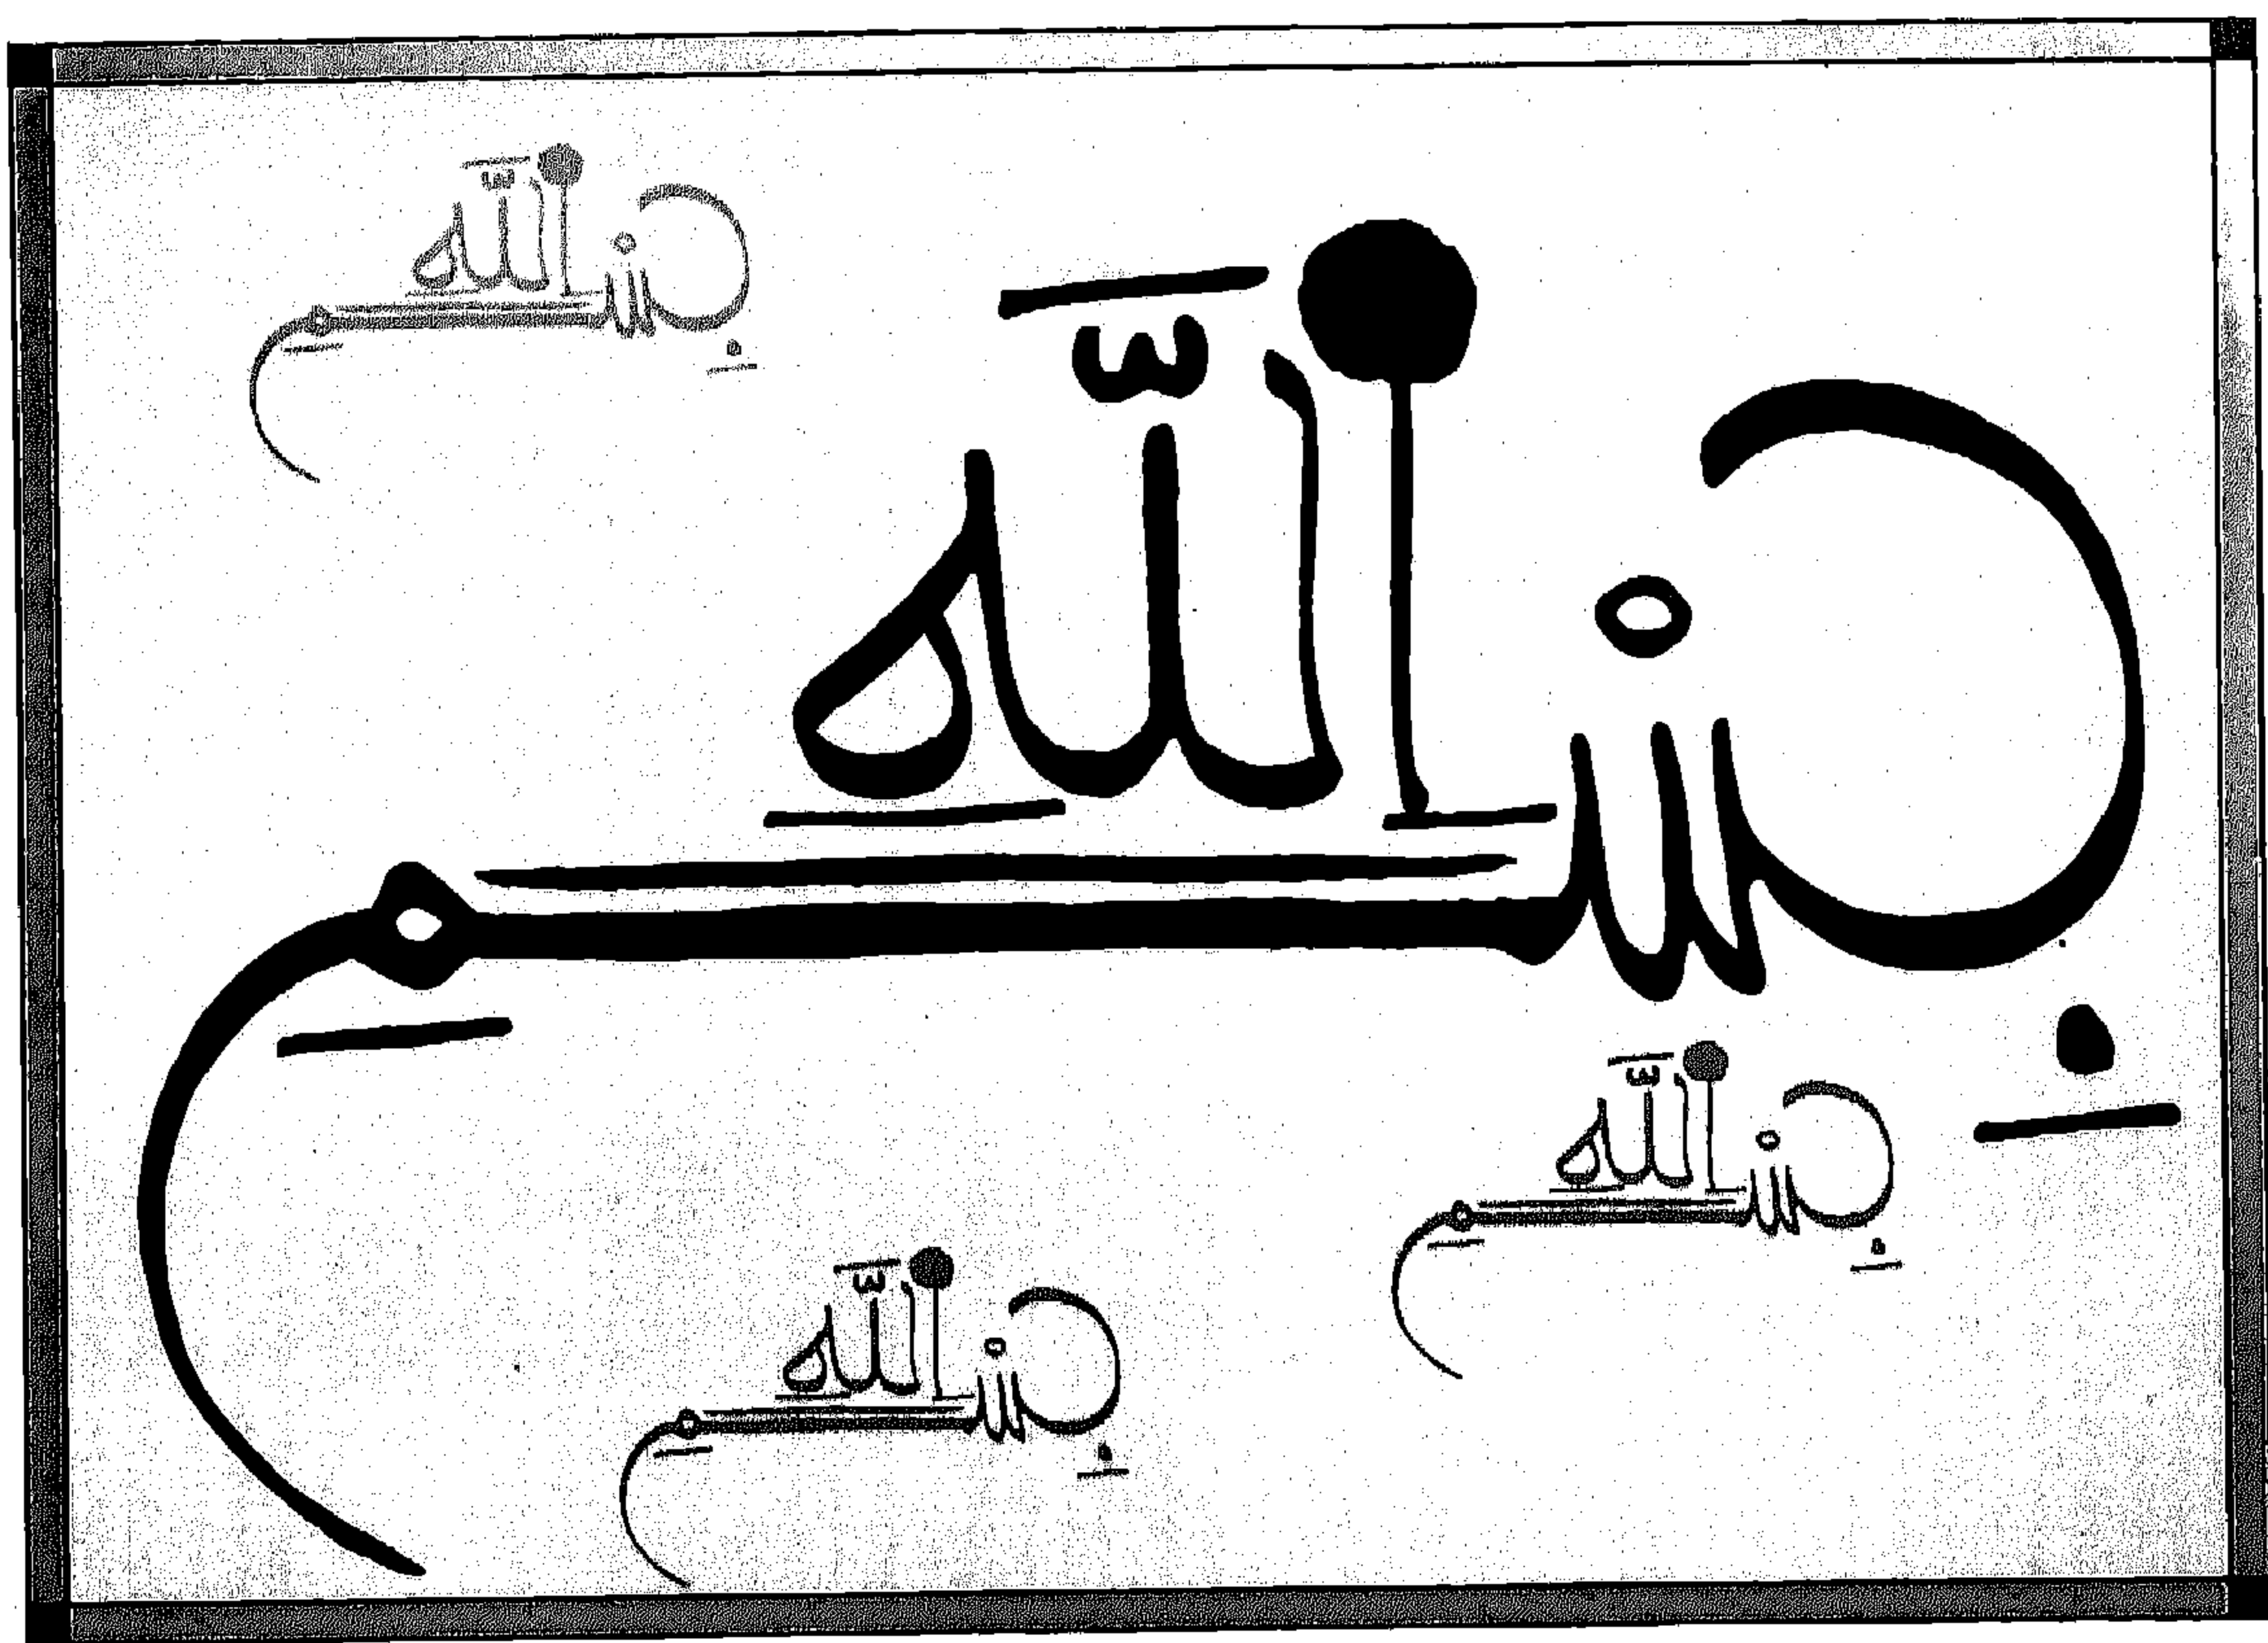 بِسْمِ اللَّهِ
بِسْمِ اللَّهِ
بِسْمِ اللَّهِ
بِسْمِ اللَّهِ